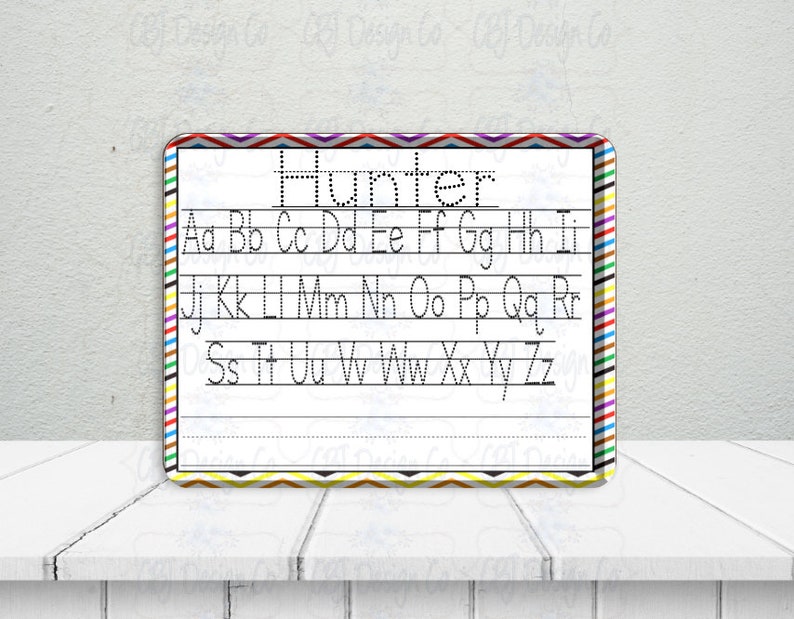 CBJ Design Co. CBJ Design Co. CBJ Design Co.
Hunter
Aa Bb Cc Dd Ee Ff Gg Hh Ii
Jj Kk Ll Mm Nn Oo Pp Qq Rr
Ss Tt Uu Vv Ww Xx Yy Zz
CBJ Design Co. CBJ Design Co. CBJ Design Co.